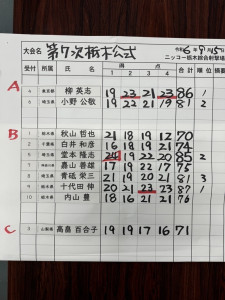 大会名 第7次栃木公式 令和6年9月15日
ニッコー栃木綜合射撃場
受付 所属 氏名 得点 合計 順位 摘要
1 2 3 4
A
4 東京都 柳 英志 19 23 21 23 86 1
6 埼玉県 小野 公敬 19 22 21 19 81 2
B
1 栃木県 秋山 哲也 21 18 19 12 70
2 千葉県 白井 和彦 18 19 18 19 74
5 埼玉県 堂本 隆志 24 19 22 20 85 2
7 嘉山 善雄 17 19 22 17 75
8 埼玉県 青砥 栄三 21 19 20 21 81 3
9 栃木県 十代田 伸 20 23 23 1
10 内山 豊 18 16 21 21 76
C
3 山梨県 高島 百合子 19 19 17 16 71